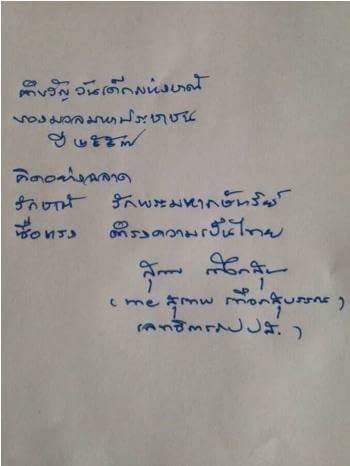 คำขวัญ วันเด็กแห่งชาติ
ของมวลมหาประชาชน
ปี ๒๕๕๗
คิดอย่างฉลาด
รักชาติ รักพระมหากษัตริย์
ซื่อตรง ดำรงความเป็นไทย
สุเทพ เทือกสุบ
( นาย สุเทพ เทือกสุบรรณ )
เลขาธิการ กปปส. )